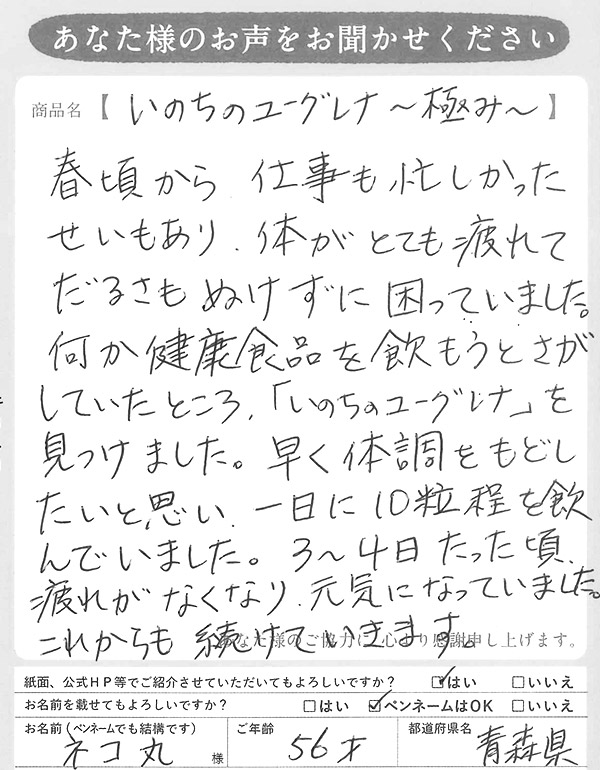 あなた様のお声をお聞かせください
商品名【いのちのユーグレナ～極み～】
春頃から 仕事も忙しかった
せいもあり、体がとても疲れて
だるさもぬけずに困っていました。
何か健康食品を飲もうとさが
していたところ、「いのちのユーグレナ」を
見つけました。早く体調をもどし
たいと思い、一日に10粒程を飲
んでいました。3～4日たった頃、
疲れがなくなり、元気になっていました。
これからも続けていきます。
あなた様のご協力に心より感謝申し上げます。
紙面、公式HP等でご紹介させていただいてもよろしいですか？ ☑はい □いいえ
お名前を載せてもよろしいですか？ □はい ☑ペンネームはOK □いいえ
お名前（ペンネームでも結構です） ネコ丸 様 ご年齢 56才 都道府県名 青森県